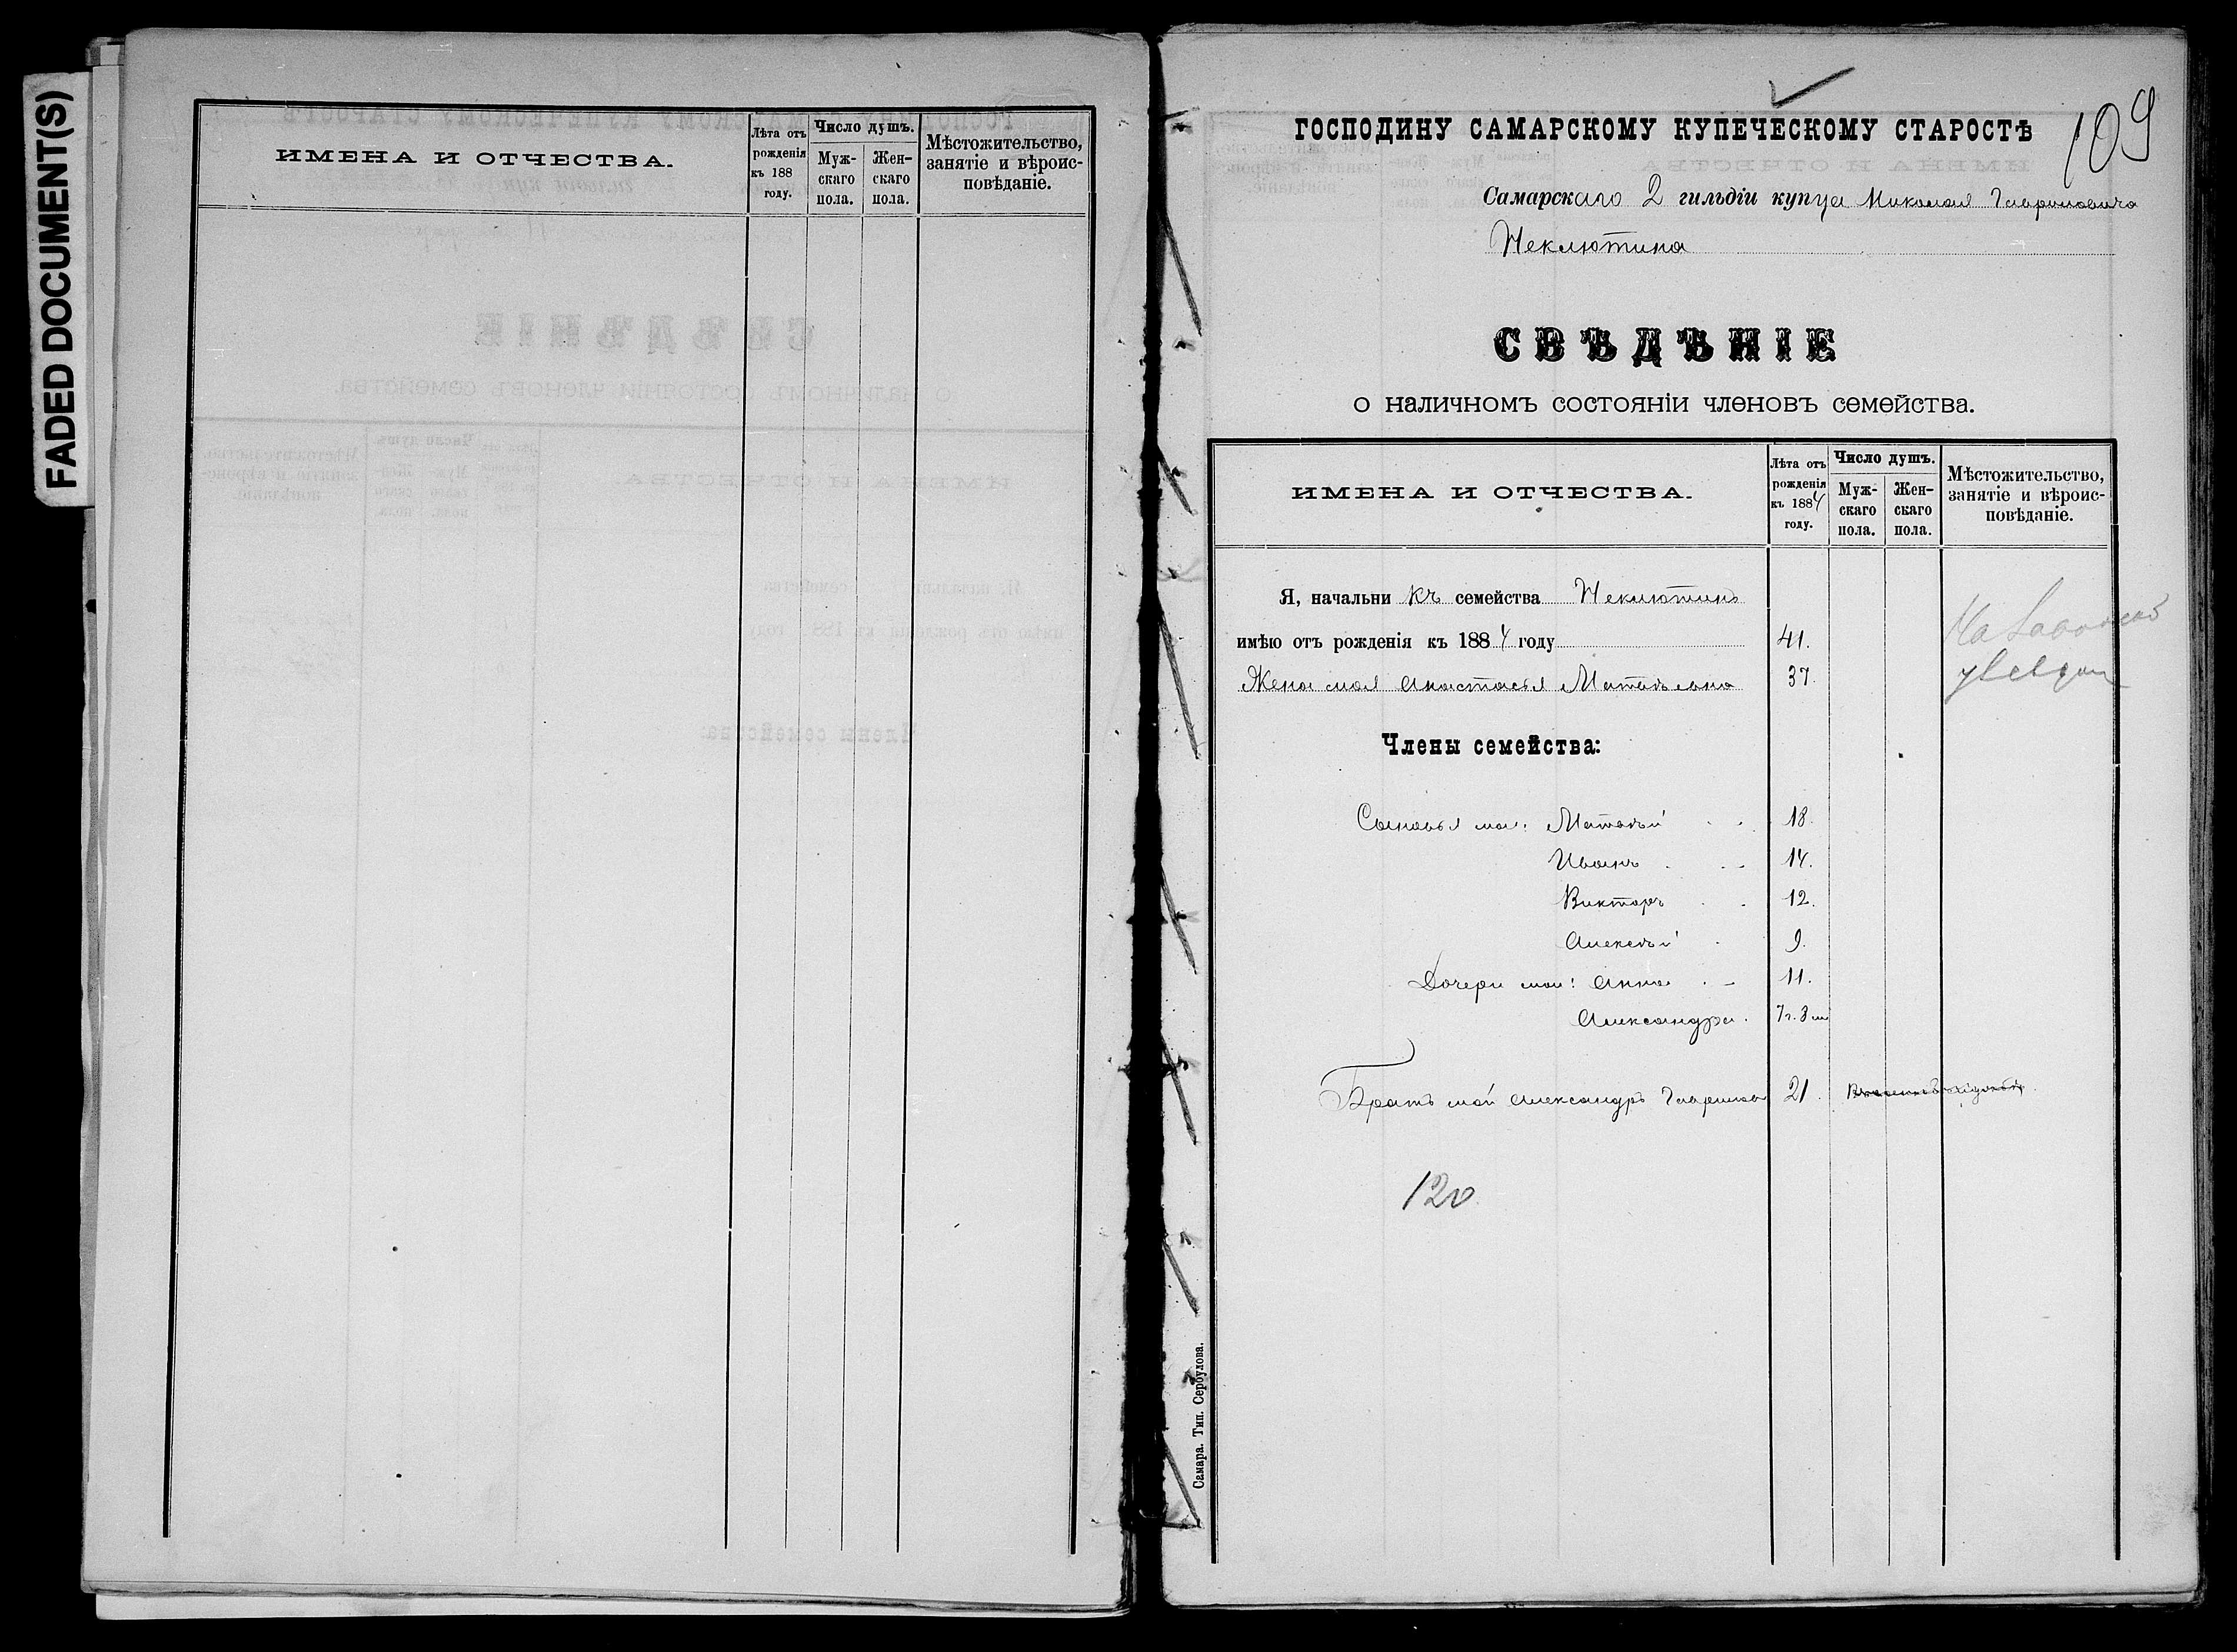 FADED DOCUMENT(S)
ИМЕНА И ОТЧЕСТВА.
Лѣта отъ
рожденія
къ 188
году.
Число душъ.
Муж-
скаго
пола.
Жен-
скаго
пола.
Мѣстожительство,
занятіе и вѣроис-
повѣданіе.
109
ГОСПОДИНУ САМАРСКОМУ КУПЕЧЕСКОМУ СТАРОСТѢ
Самарскаго 2 гильдіи купца Николая Гавриловича
Неклютина
СВѢДѢНІЕ
о наличномъ состояніи членовъ семейства.
ИМЕНА И ОТЧЕСТВА.
Лѣта отъ
рожденія
къ 1884
году.
Число душъ.
Муж-
скаго
пола.
Жен-
скаго
пола.
Мѣстожительство,
занятіе и вѣроис-
повѣданіе.
Я, начальникъ семейства Неклютинъ
имѣю отъ рожденія къ 1884 году 41.
Жена моя Анастасья Матвѣевна 37.
Члены семейства:
Сыновья мои: Матвѣй 18.
Иванъ 14.
Викторъ 12.
Алексѣй 9.
Дочери мои: Анна 11.
Александра. 7 г. 8 м
Братъ мой Александръ Гаврилов 21.
120
Самара. Тип. Сербулова.